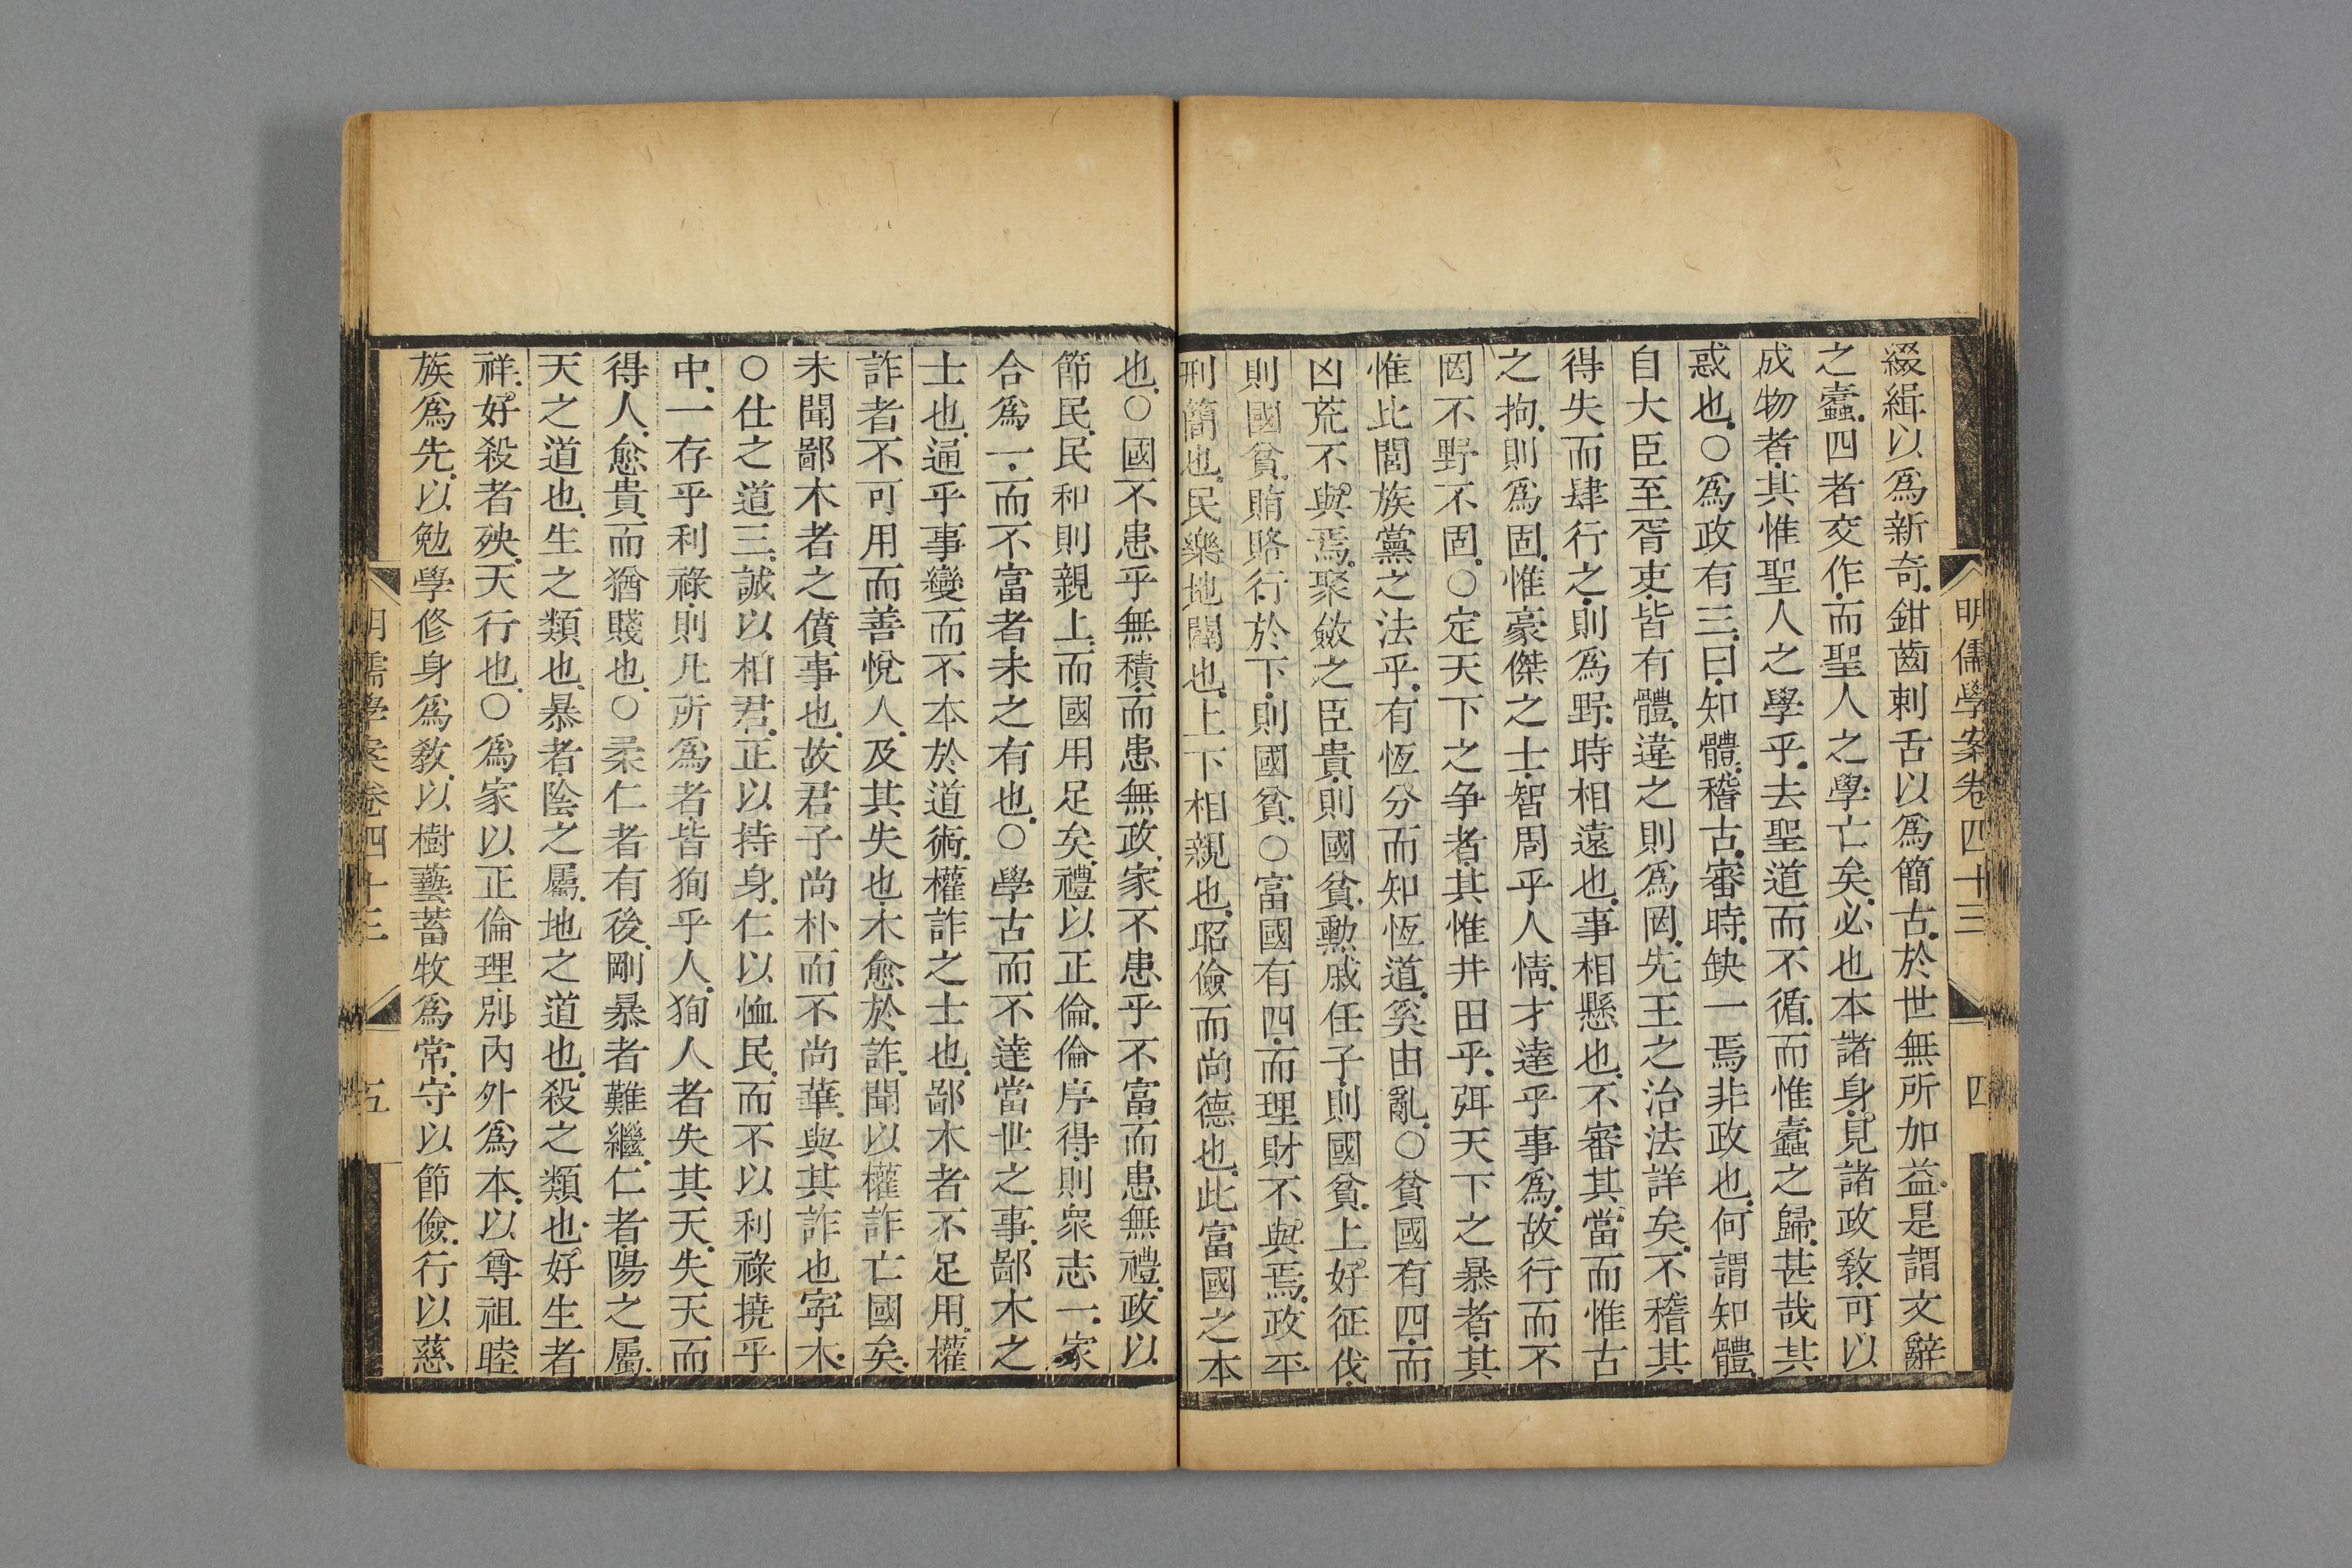 明儒學案卷四十三 四
綴緝以爲新奇.鉗齒刺舌以爲簡古.於世無所加益.是謂文辭
之蠹.四者交作.而聖人之學亡矣.必也本諸身.見諸政敎.可以
成物者.其惟聖人之學乎.去聖道而不循.而惟蠹之歸.甚哉其
惑也.○爲政有三.曰.知體.稽古.審時.缺一焉非政也.何謂知體.
自大臣至胥吏.皆有體.違之則爲罔.先王之治法詳矣.不稽其
得失而肆行之.則爲野.時相遠也.事相懸也.不審其當而惟古
之拘.則爲固.惟豪傑之士.智周乎人情.才達乎事爲.故行而不
罔不野不固.○定天下之争者.其惟井田乎.弭天下之暴者.其
惟比閭族黨之法乎.有恆分而知恆道.奚由亂.○貧國有四.而
凶荒不與焉.聚斂之臣貴.則國貧.勲戚任子.則國貧.上好征伐.
則國貧.賄賂行於下.則國貧.○富國有四.而理財不與焉.政平
刑簡也.民樂地闢也.上下相親也.昭儉而尚德也.此富國之本
也.○國不患乎無積.而患無政.家不患乎不富.而患無禮.政以
節民.民和則親上.而國用足矣.禮以正倫.倫序得.則衆志一.家
合爲一.而不富者未之有也.○學古而不達當世之事.鄙木之
士也.通乎事變而不本於道術.權詐之士也.鄙木者不足用.權
詐者不可用.而善悅人.及其失也.木愈於詐.聞以權詐亡國矣.
未聞鄙木者之僨事也.故君子尚朴而不尚華.與其詐也寜木.
○仕之道三.誠以相君.正以持身.仁以恤民.而不以利祿撓乎
中.一存乎利祿.則凡所爲者皆狥乎人.狥人者失其天.失天而
得人.愈貴.而猶賤也.○柔仁者有後.剛暴者難繼.仁者.陽之屬.
天之道也.生之類也.暴者.陰之屬.地之道也.殺之類也.好生者
祥.好殺者殃.天行也.○爲家以正倫理.別內外爲本.以尊祖睦
族爲先.以勉學修身爲敎.以樹藝蓄牧爲常.守以節儉.行以慈
明儒學案卷四十三 五